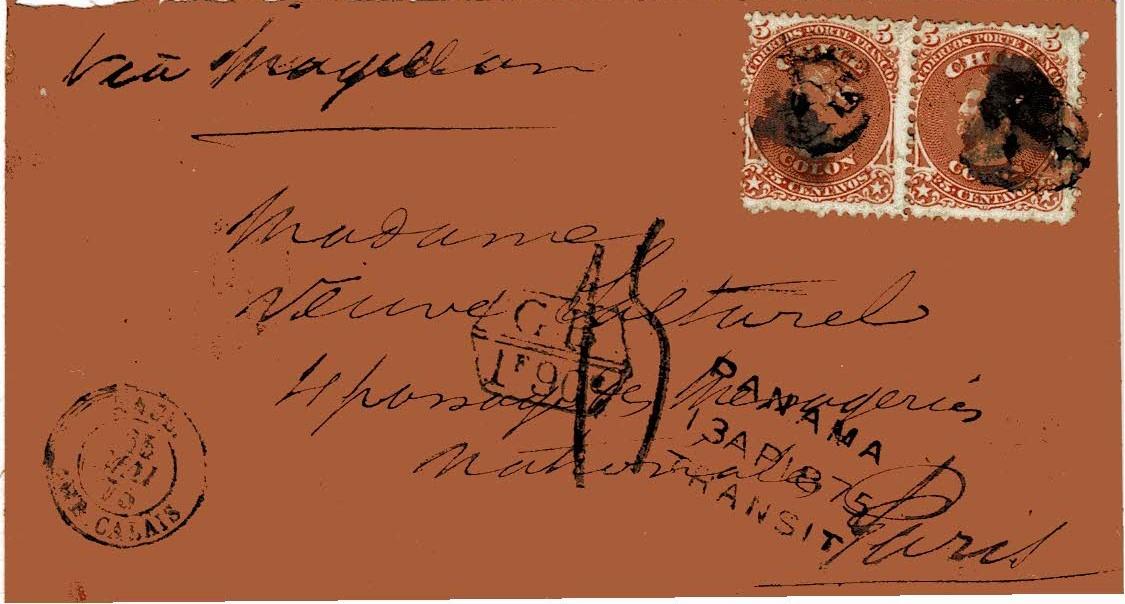 Via Magellan
5 5
CORREOS PORTE FRANCO
CHILE
COLON
5 CENTAVOS
5 5
CORREOS PORTE FRANCO
CH
CO
5 CENTAVOS
Madame
Veuve
G.B.
1F90c
15
4 passage des Messageries
PANAMA
13 AP 1875
TRANSIT
Nationales
Paris
ANGL.
MAI
75
AMB. CALAIS